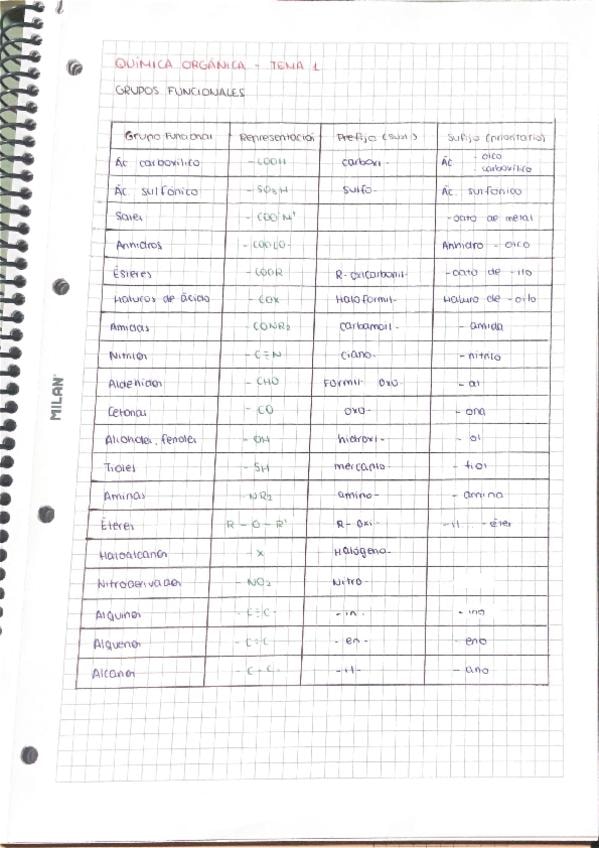 QUÍMICA ORGÁNICA - TEMA 1
GRUPOS FUNCIONALES
Grupo Funcional Representación Prefijo (sust.) Sufijo (prioritario)
Ác carboxílico -COOH carboxi- Ác -oico -carboxílico
Ác. sulfónico -SO3H sulfo- Ác. sulfónico
Sales -oato de metal
Anhidros -COOCO- Anhidro -oico
Ésteres -COOR R-oxicarbonil- -oato de -ilo
Haluros de ácido -COX Haloformil- Haluro de -oilo
Amidas -CONR2 carbamoil- -amida
Nitrilos -C≡N ciano- -nitrilo
Aldehídos -CHO Formil- oxo- -al
Cetonas -CO oxo- -ona
Alcoholes, fenoles -OH hidroxi- -ol
Tioles -SH mercapto- -tiol
Aminas -NR2 amino- -amina
Éteres R-O-R' R-oxi- -il... -éter
Haloalcanos -X Halógeno-
Nitroderivados -NO2 Nitro-
Alquinos -C≡C- -in- -ino
Alquenos -C=C- -en- -eno
Alcanos -C-C- -il- -ano
MILAN